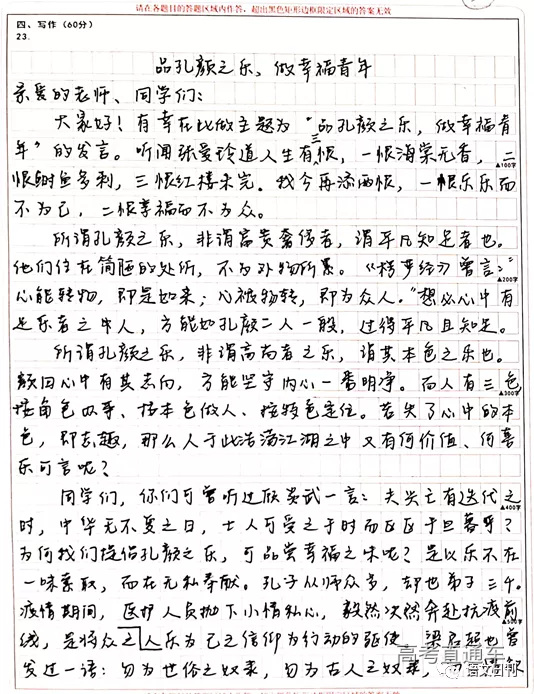 请在各题目的答题区域内作答，超出黑色矩形边框限定区域的答案无效
四、写作（60分）
23.
品孔颜之乐，做幸福青年
亲爱的老师、同学们：
大家好！有幸在此做主题为“品孔颜之乐，做幸福青
年”的发言。听闻张爱玲道人生有三恨，一恨海棠无香，二
▲100字
恨鲥鱼多刺，三恨红楼未完。我今再添两恨，一恨乐乐而
不为己，二恨享福而不为众。
所谓孔颜之乐，非谓富贵奢侈者，谓平凡知足者也。
他们住在简陋的处所，不为外物所累。《楞严经》曾言：“
▲200字
心能转物，即是如来；心被物转，即为众人。”想必心中有
足乐者之中人，方能如孔颜二人一般，过得平凡且知足。
所谓孔颜之乐，非谓高尚者之乐，谓其本色之乐也。
颜回心中有其志向，方能坚守内心一番明净。而人有三色
▲300字
按角色办事、按本色做人、按特色定位。若失了心中的本
色，即志趣，那么人于此浩荡江湖之中又有何价值、何喜
乐可言呢？
同学们，你们可曾听过一言：夫失亡有迭代之
▲400字
时，中华无不复之日，士人可受之于时而区区于旦暮乎？
为何我们提倡孔颜之乐，可品尝幸福之味呢？是以乐不在
一味索取，而在无私奉献。孔子从师众多，却也弟子三千。
疫情期间，医护人员抛下小情私心，毅然决然奔赴抗疫前
▲500字
线，是将众之人乐为己之信仰为行动的驱使。梁启超也曾
发过一语：勿为世俗之奴隶，勿为古人之奴隶，勿
高考直通车
语文日刊